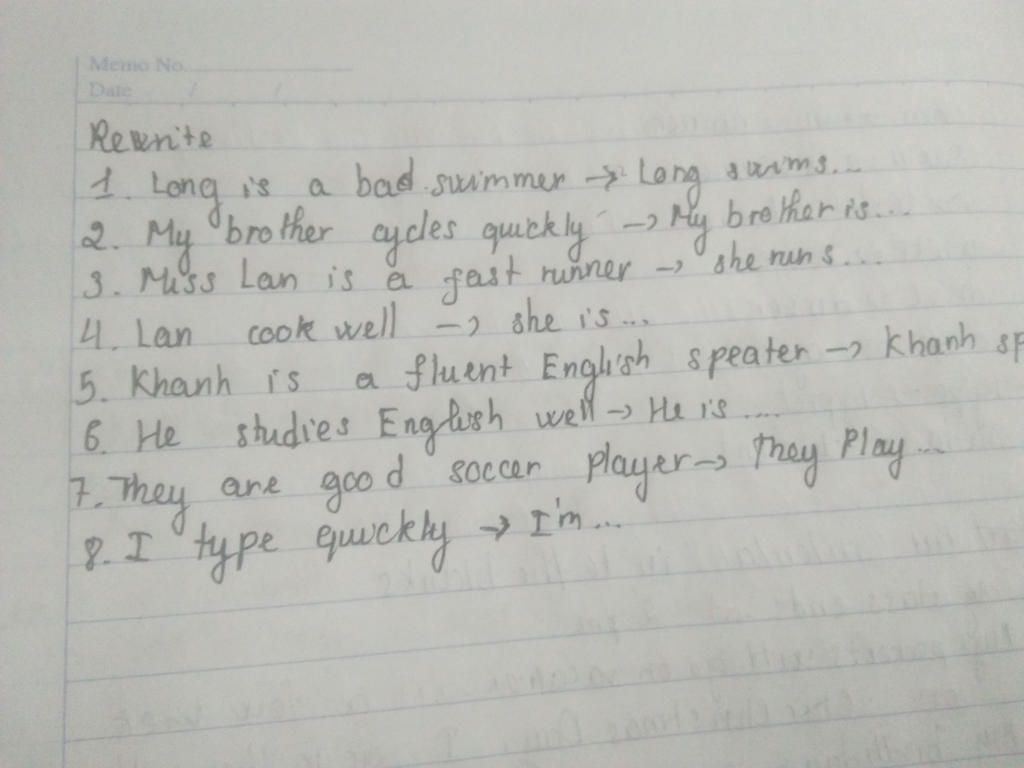 Memo No.
Date / /
Rewrite
1. Long is a bad swimmer → Long swims...
2. My brother cycles quickly → My brother is...
3. Miss Lan is a fast runner → she runs...
4. Lan cook well → she is...
5. Khanh is a fluent English speater → Khanh sp
6. He studies English well → He is ....
7. They are good soccer player → They Play...
8. I type quickly → I'm...